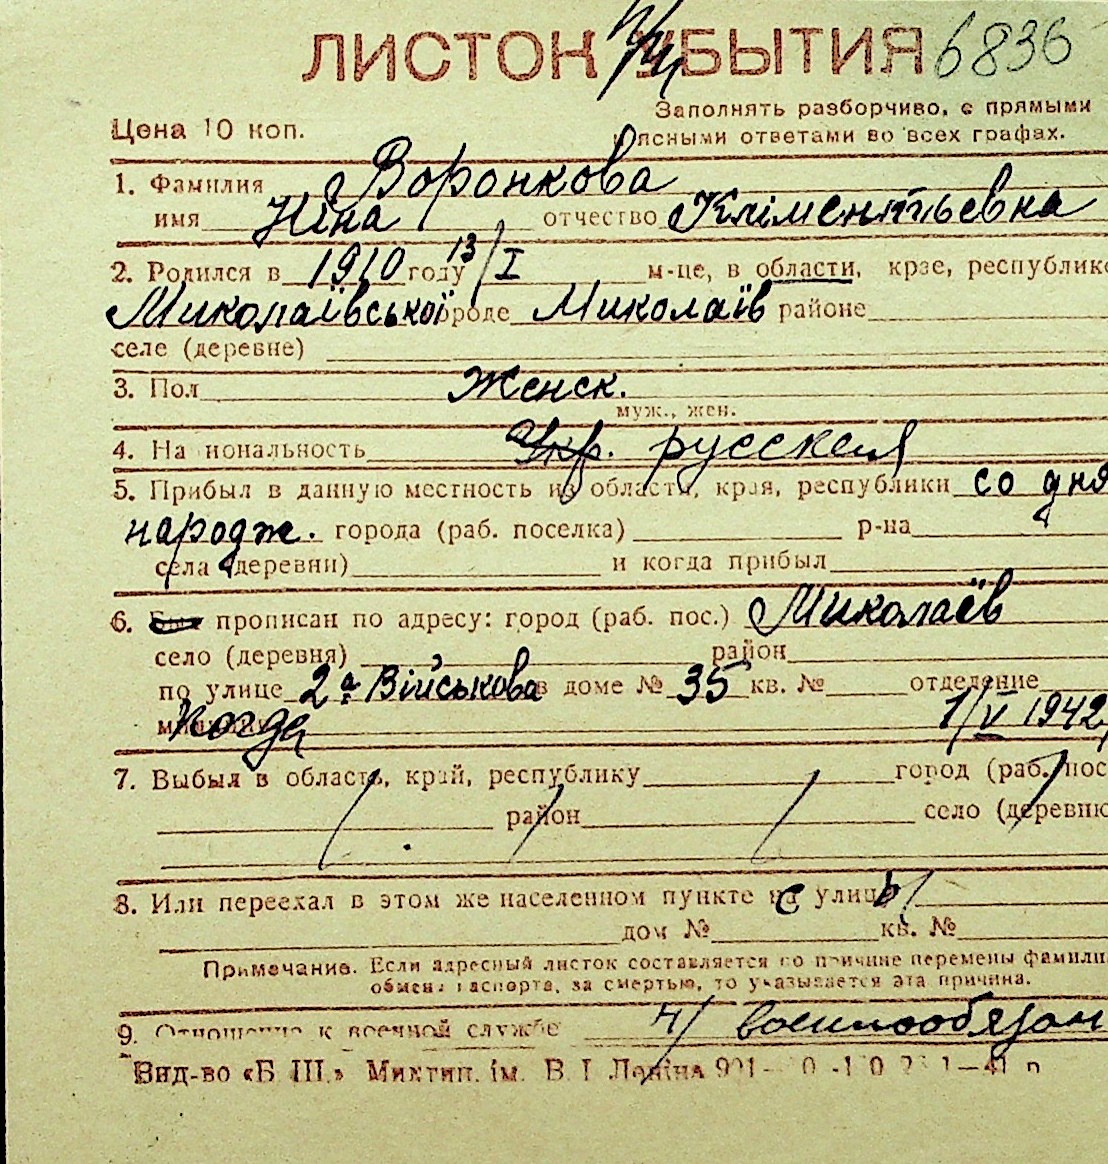 ЛИСТОК УБЫТИЯ 6836
Заполнять разборчиво, с прямыми
Цена 10 коп. и ясными ответами во всех графах.
1. Фамилия Воронкова
имя Ніна отчество Кліментьевна
2. Родился в 1910 году 13/I м-це, в области, крае, республике
Миколаївської городе Миколаїв районе
селе (деревне)
3. Пол Женск.
муж., жен.
4. Национальность Укр. русская
5. Прибыл в данную местность из области, края, республики со дня
народж. города (раб. поселка) р-на
села (деревни) и когда прибыл
6. Был прописан по адресу: город (раб. пос.) Миколаїв
село (деревня) район
по улице 2а Військова в доме № 35 кв. № отделение
милиции Когда 1/V 1942
7. Выбыл в область, край, республику город (раб. пос
район село (деревню
8. Или переехал в этом же населенном пункте на улицу
дом № кв. №
Примечание. Если адресный листок составляется по причине перемены фамилии
обмена паспорта, за смертью, то указывается эта причина.
9. Отношение к военной службе н/военнообязан
Вид-во «Б. Ш.» Миктип. ім. В. І. Леніна